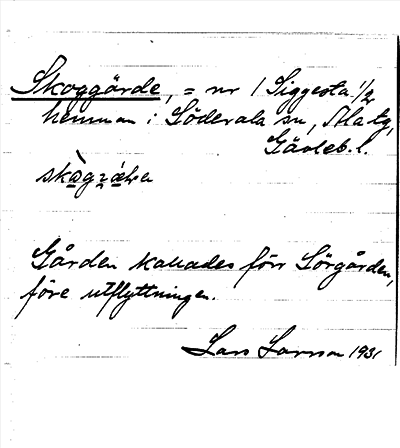 Skoggärde, = nr 1 Siggesta 1/2
hemman i Söderala sn, Ala tg,
Gävleb. l.
Gården kallades förr Sörgården,
före utflyttningen.
Lars Larsson 1931